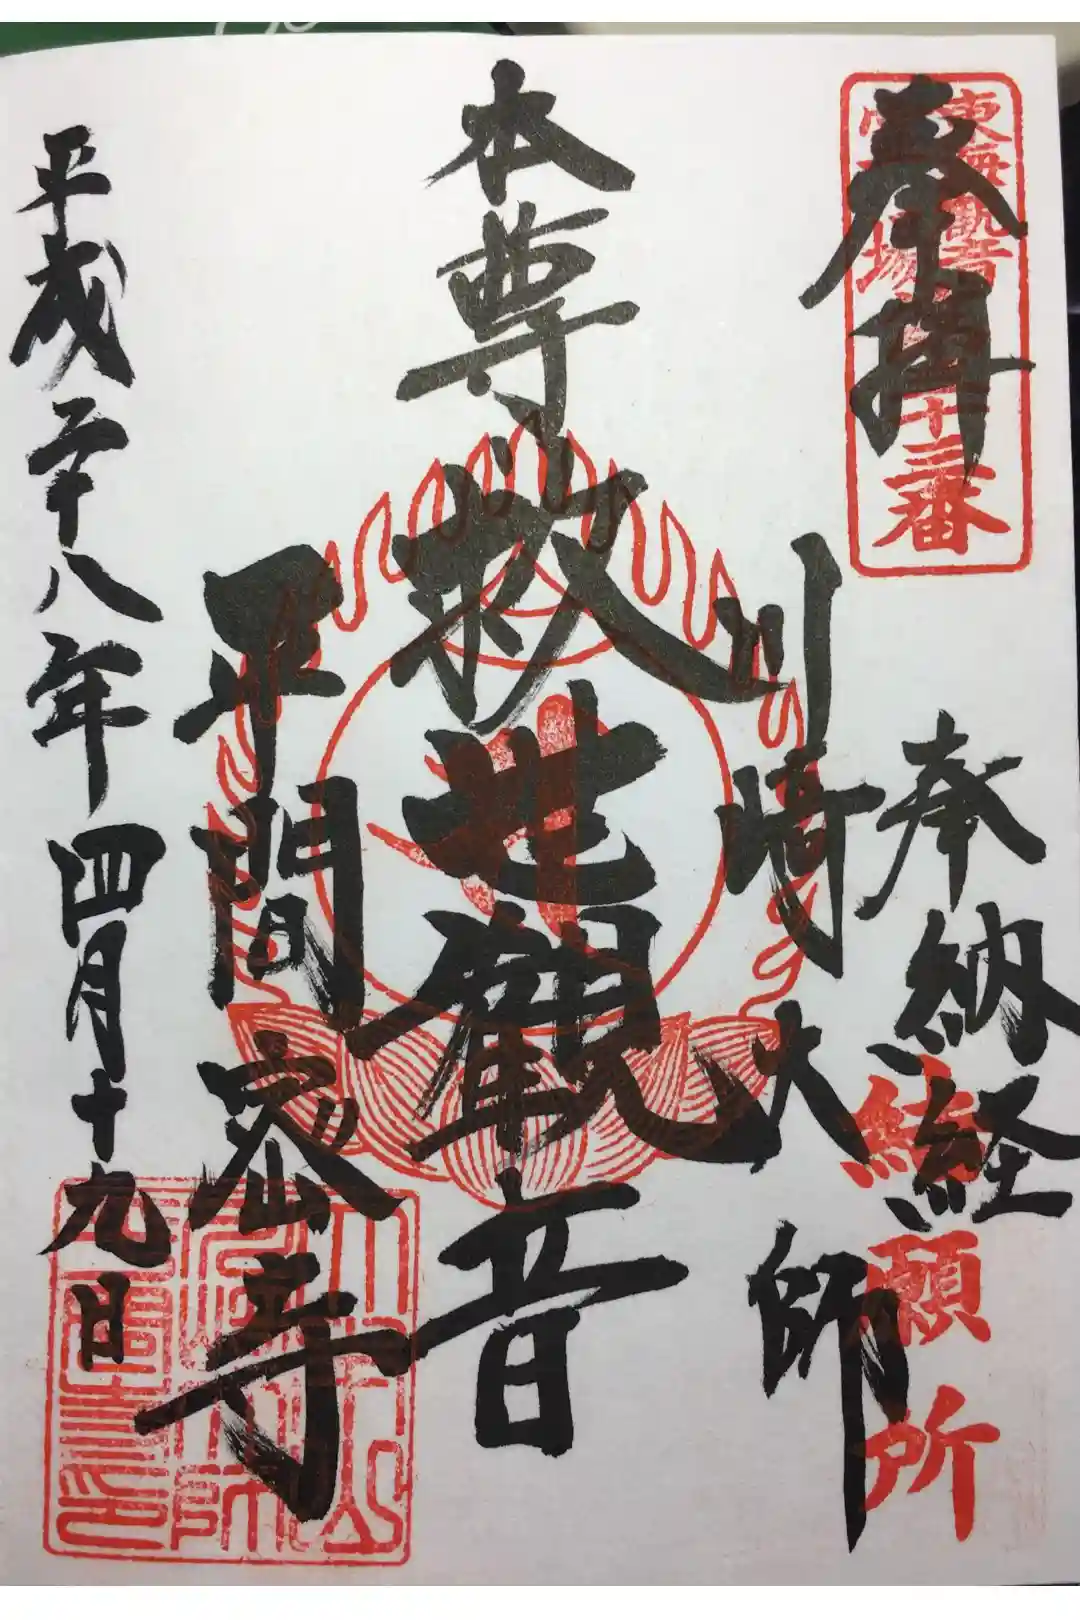 奉拝
東海観音
霊場
十三番
奉納経
結願所
川崎大師
本尊救世観音
平間密寺
平成二十八年四月十九日